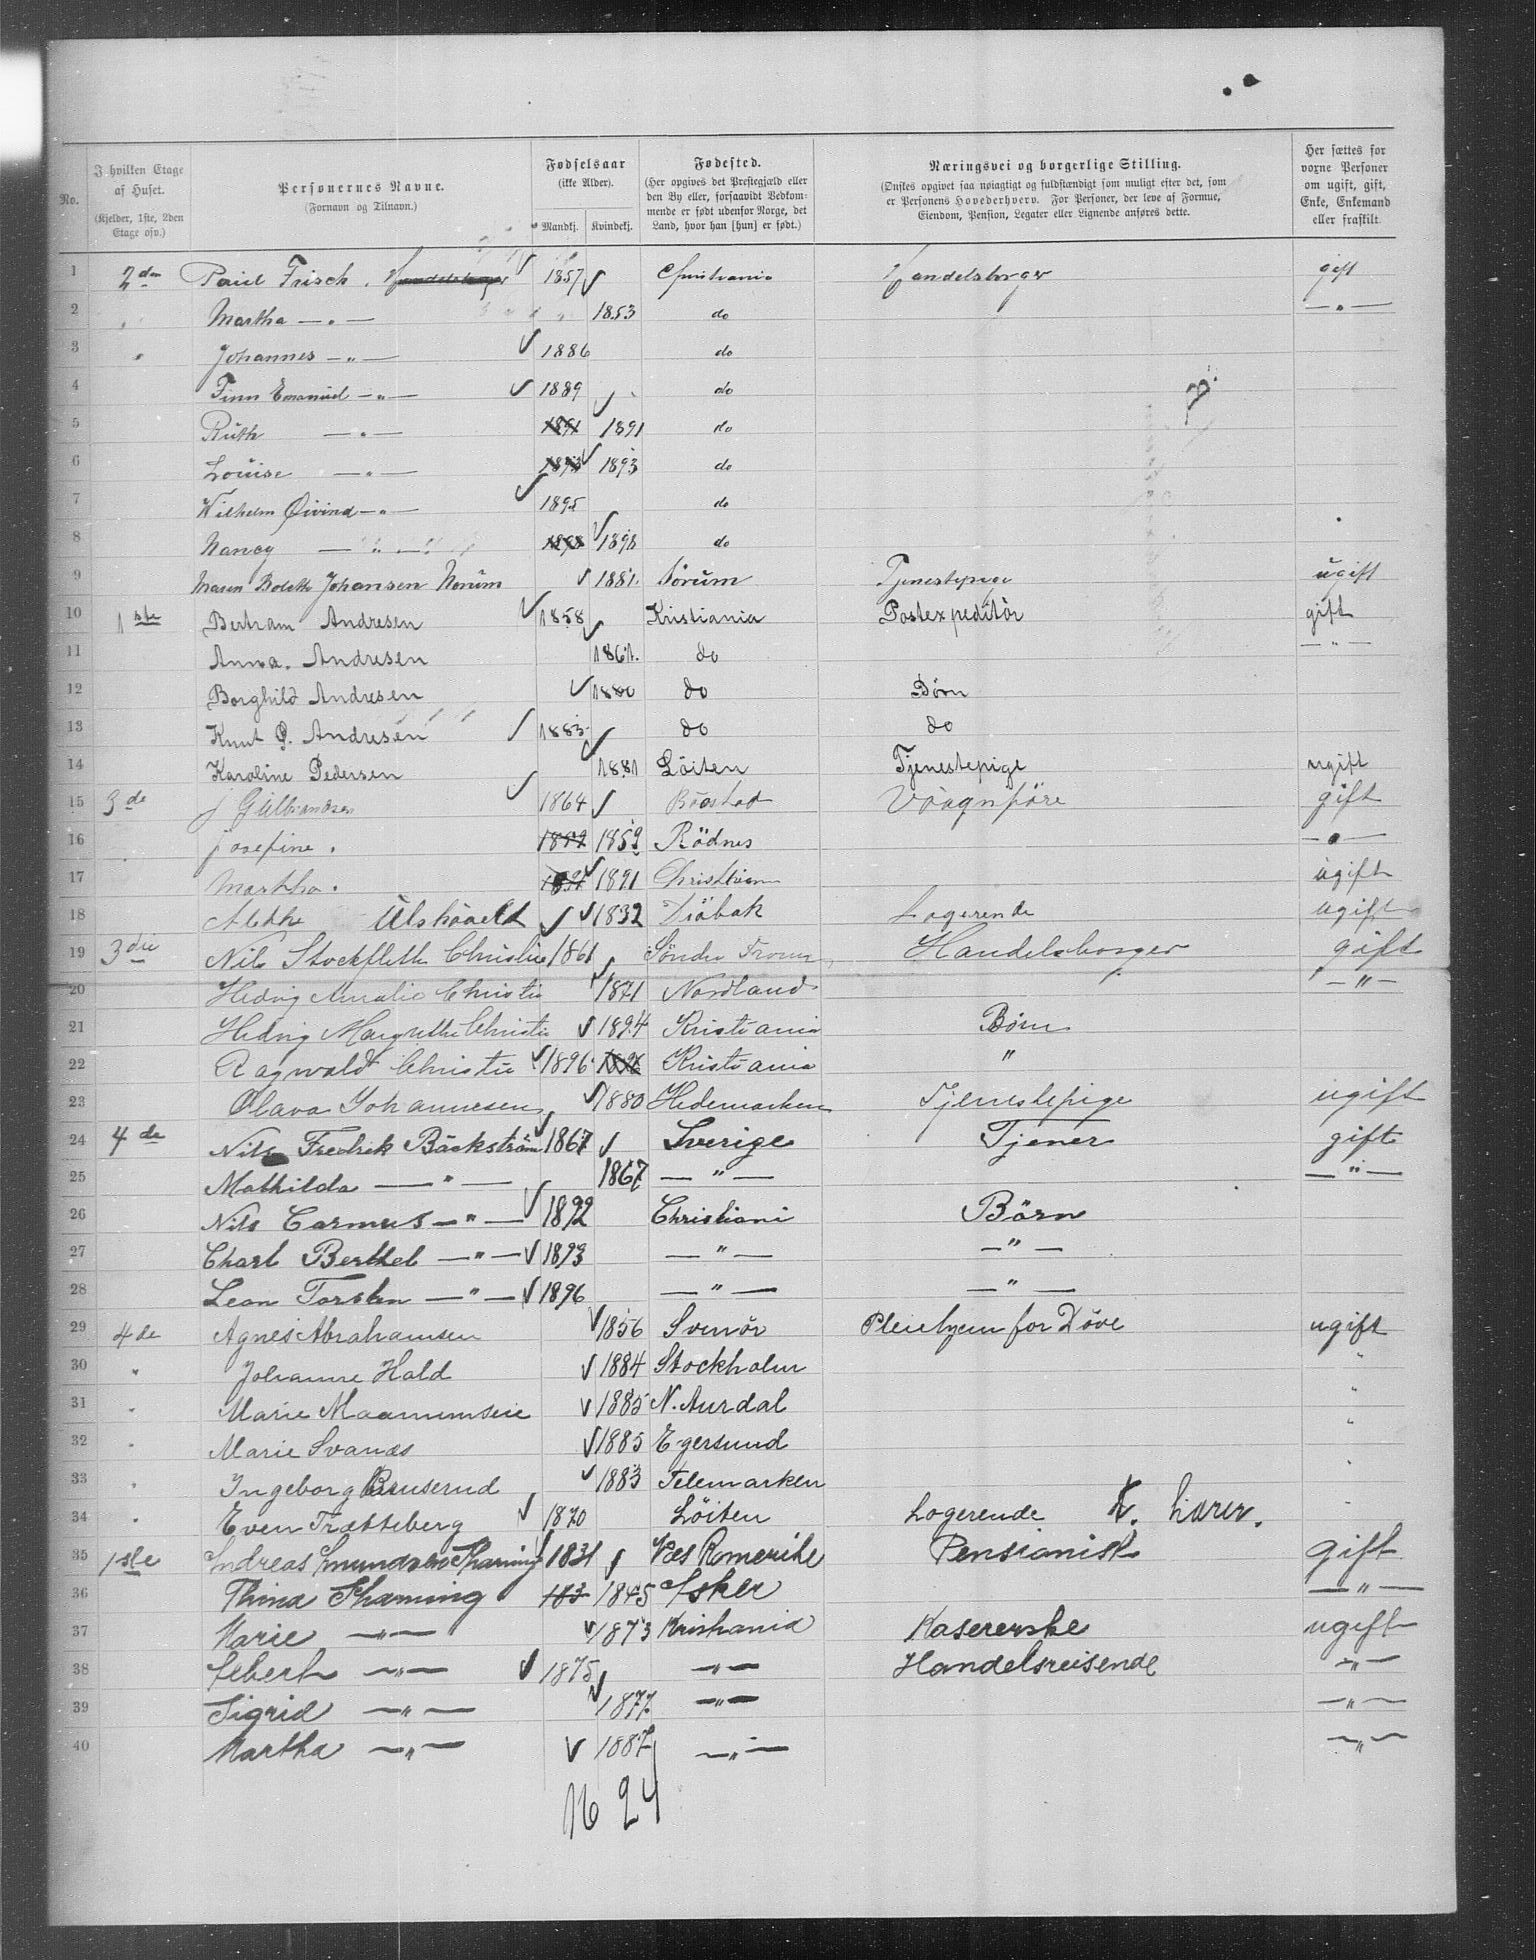 No.
I hvilken Etage af Huset.
(Kjelder, 1ste, 2den Etage osv.)
Personernes Navne.
(Fornavn og Tilnavn.)
Fødselsaar
(ikke Alder).
Mandkj. Kvindekj.
Fødested.
(Her opgives det Prestegjæld eller den By eller, forsaavidt Vedkommende er født udenfor Norge, det Land, hvor han [hun] er født.)
Næringsvei og borgerlige Stilling.
(Ønskes opgivet saa nøiagtigt og fuldstændigt som muligt efter det, som er Personens Hovederhverv. For Personer, der leve af Formue, Eiendom, Pension, Legater eller Lignende anføres dette.
Her sættes for vorne Personer om ugift, gift, Enke, Enkemand eller fraskilt.
1 2den Paul Frisch, Handelsborger 1857 Christiania Handelsborger gift
2 " Martha —"— 1853 do —"—
3 " Johannes —"— 1886 do
4 Finn Emanuel —"— 1889 do
5 Ruth —"— 1891 1891 do
6 Louise —"— 1893 1893 do
7 Wilhelm Øivind —"— 1895 do
8 Nancy —"— 1898 1898 do
9 Maren Bolette Johansen Norum 1881. Sørum Tjenestepige ugift
10 1ste Bertram Andresen 1858 Kristiania Postexpeditör gift
11 Anna. Andresen 1861. do —"—
12 Borghild Andresen 1880 do Börn
13 Knut P. Andresen 1883 do do
14 Karoline Pedersen 1881 Löiten Tjenestepige ugift
15 3de J Gulbrandsen 1864 Vöagnföre gift
16 josefine. 1852 1852 Rödnes —"—
17 Martha. 1891 1891 Christiania ugift
18 Alethe 1832 Dröbak Logerende ugift
19 3die Nils Stockfleth Christie 1861 Söndre Handelsborger gift
20 Hedvig Amalie Christie 1871 Nordland —"—
21 Hedvig Margrethe Christie 1894 Kristiania Börn
22 Ragnvald Christie 1896 1896 Kristiania "
23 Olava Johannesen 1880 Hedemarken Tjenestepige ugift
24 4de Nils Fredrik Bäckström 1867 Sverige Tjener gift
25 Mathilda —"— 1867 —"— —"—
26 Nils Carmus —"— 1892 Christiani Börn
27 Charl Berthel —"— 1893 —"— —"—
28 Leon Torsten —"— 1896 —"— —"—
29 4de Agnes Abrahamsen 1856 Svenör Pleiehjem for Döve ugift
30 " Johanne Hald 1884 Stockholm "
31 " Marie 1885 N. Aurdal "
32 " Marie Svanæs 1885 Egersund
33 " Ingeborg Buuserud 1883 Telemarken "
34 " Even Trætteberg 1870 Löiten Logerende "
35 1ste Andreas Amundsen Thaning 1831 Næs Romerike Pensionist gift
36 Thina Thaning 183 1845 Asker —"—
37 Marie —"— 1873 Kristiania Kasererske ugift
38 —"— 1875 —"— Handelsreisende —"—
39 Sigrid —"— 1877 —"— —"—
40 Martha —"— 1887 —"— —"—
16 24